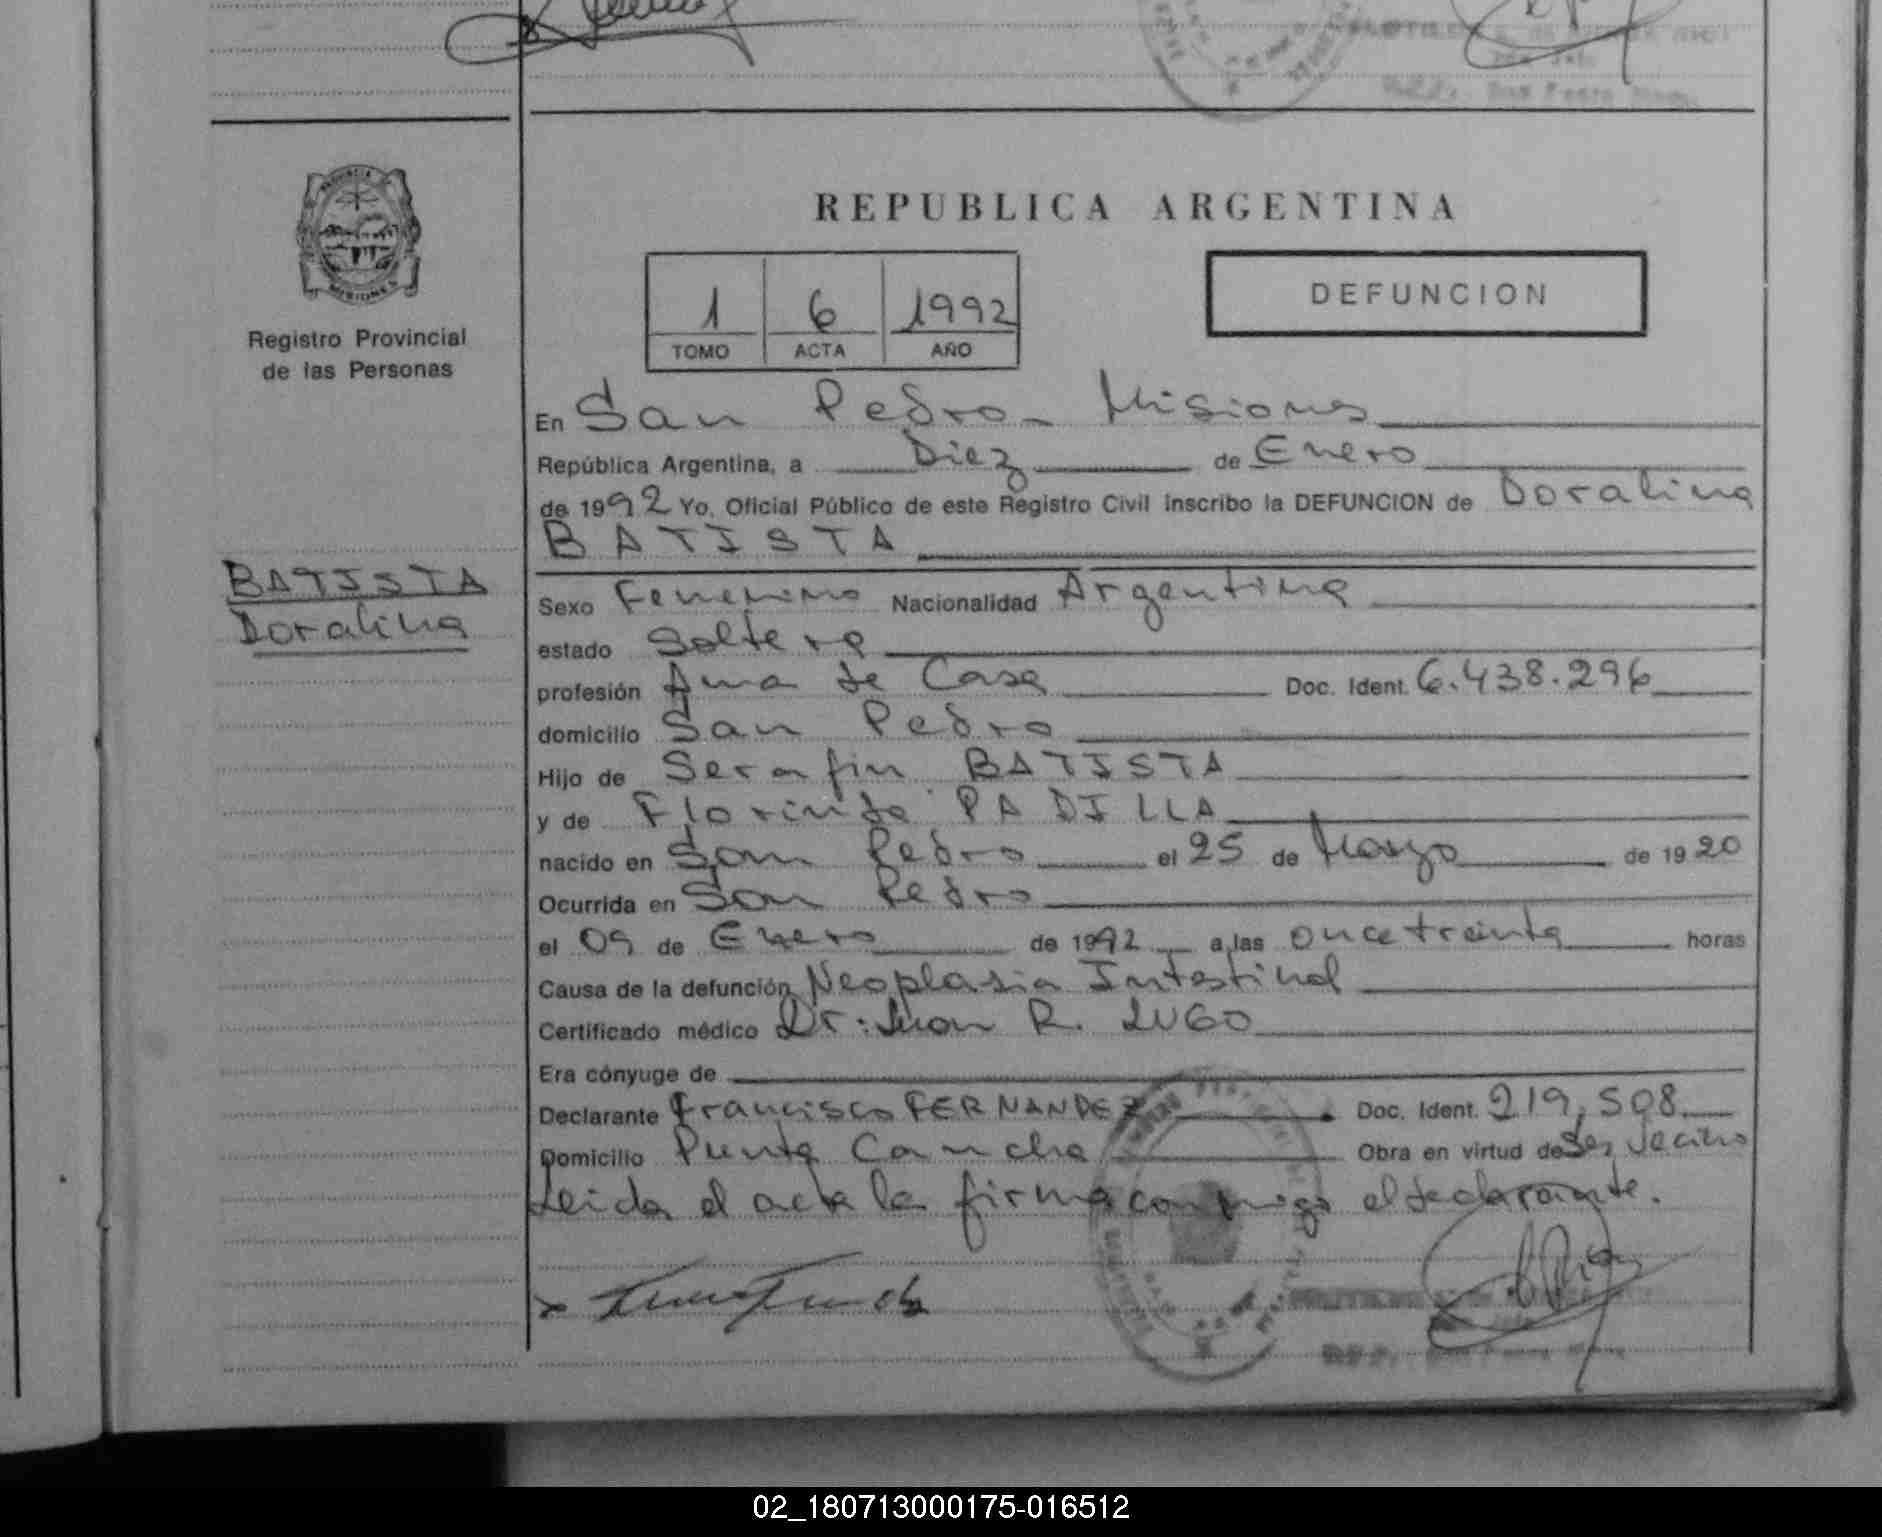 REPUBLICA ARGENTINA
Registro Provincial
de las Personas
1 6 1992
TOMO ACTA AÑO
DEFUNCION
En San Pedro - Misiones
República Argentina, a Diez de Enero
de 1992 Yo, Oficial Público de este Registro Civil inscribo la DEFUNCION de Doralina
BATISTA
BATISTA
Doralina
Sexo Femenino Nacionalidad Argentina
estado Soltera
profesión Ama de Casa Doc. Ident. 6.438.296
domicilio San Pedro
Hijo de Serafin BATISTA
y de Florinda PADILLA
nacido en San Pedro el 25 de Marzo de 1920
Ocurrida en San Pedro
el 09 de Enero de 1992 a las once treinta horas
Causa de la defunción Neoplasia Intestinal
Certificado médico Dr: Juan R. LUGO
Era cónyuge de
Declarante Francisco FERNANDEZ Doc. Ident. 219,508
Domicilio Punta Cancha Obra en virtud de Ser vecino
Leida el acta la firma conmigo el declarante.
02_180713000175-016512